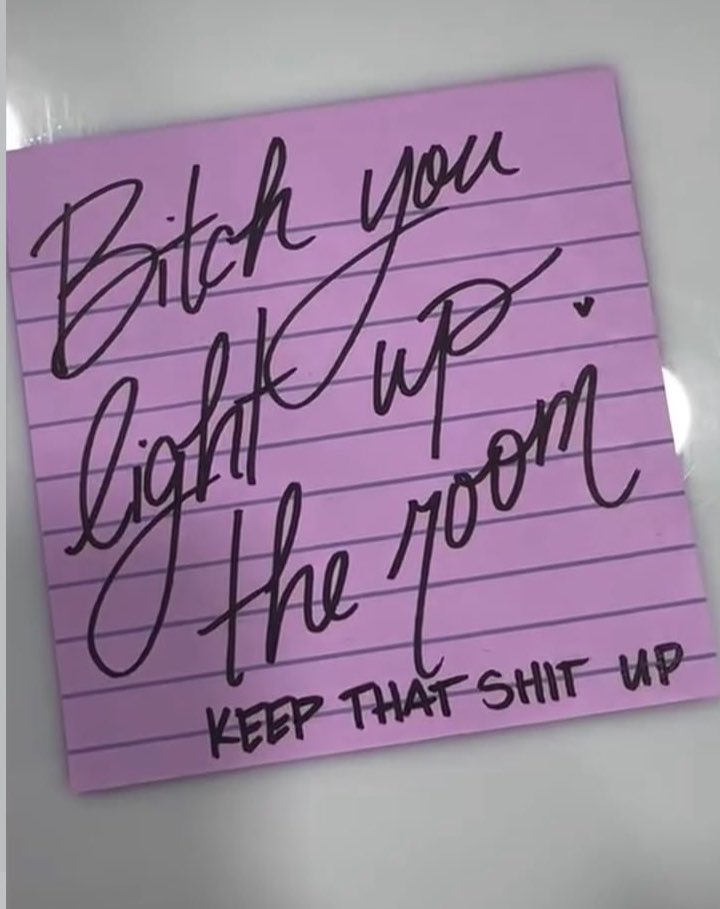 Bitch you
light up
the room
KEEP THAT SHIT UP